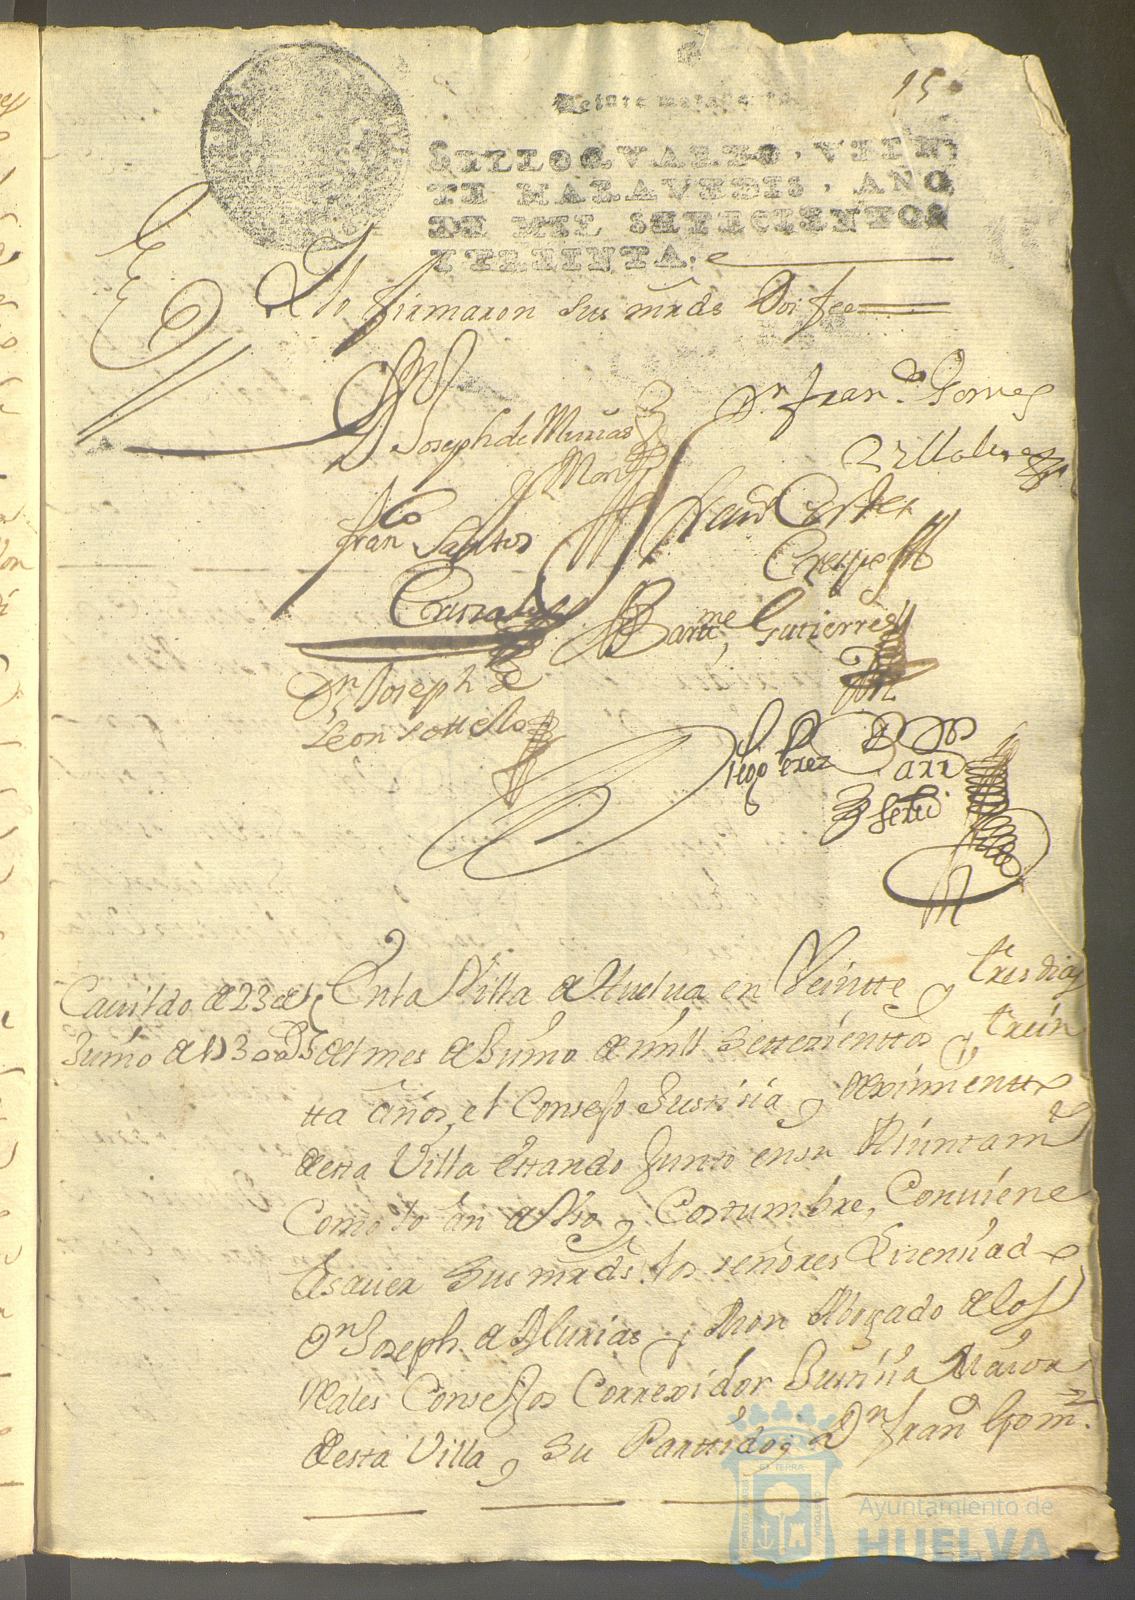 15
Veinte maravedis
SELLO QVARTO, VEIN
TE MARAVEDIS, AÑO
DE MIL SETECIENTOS
Y TREINTA.
lo firmaron sus mrds Doi fee
Dn Joseph de Murias
y Mon
Dn Franco Gomes
Villalva
Franco Santos
Franco Cortes
Crespo
Barme Gutierres
Dn Joseph de
Leon Sottelo
Diego Perez Barr
Cavildo de 23 de
Junio de 1730 as
En la Villa de Huelva en Veintte y tres dias
del mes de Junio de mill settezienttos y trein
tta años, el Consejo Justizia y Reximientto
desta Villa estando Junto en su Aiuntamto
Como lo an de Uso y Costumbre, Conviene
Asaver sus mrds. los señores Lizenziado
Dn Joseph de Murias y Mon Abogado de los
Reales Consejos Correxidor Justizia Maior
desta Villa y su Parttido, Dn Franco Gomz
Ayuntamiento de
HUELVA